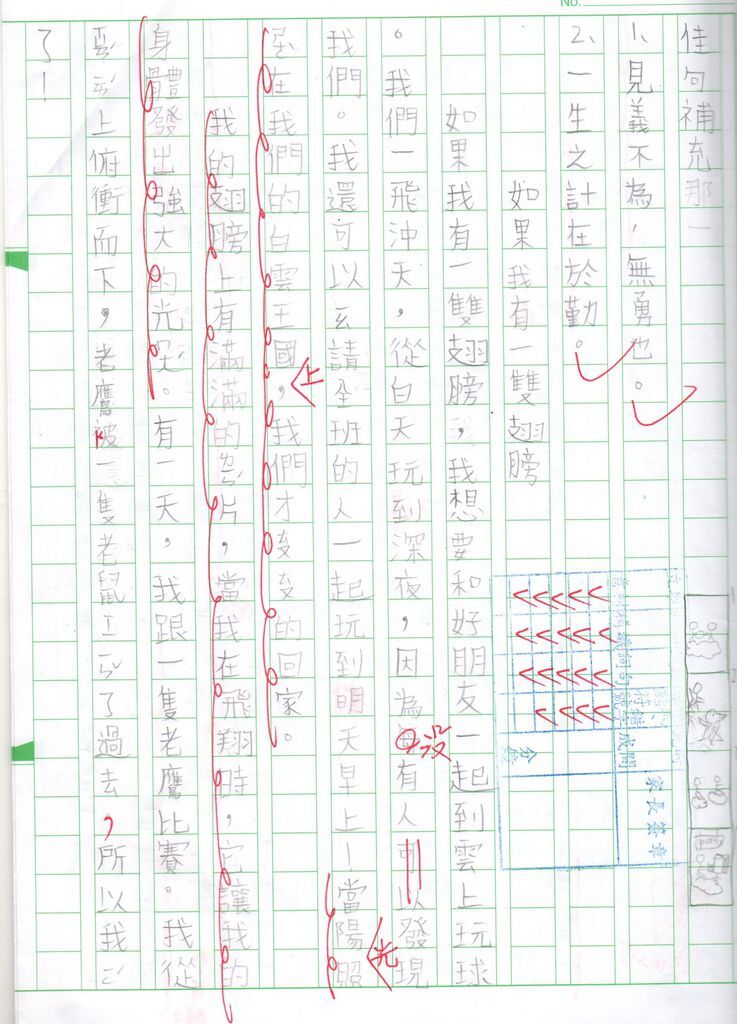 No.
佳句補充那一
1、見義不為，無勇也。
2、一生之計在於勤。
如果我有一雙翅膀
如果我有一雙翅膀，我想要和好朋友一起到雲上玩球
。我們一飛沖天，從白天玩到深夜，因為沒有人可以發現
我們。我還可以ㄠ請全班的人一起玩到明天早上！當陽光照
至在我們的白雲王國上，我們才ㄆㄆ的回家。
我的翅膀上有滿滿的片，當我在飛翔時，它讓我的
身體發出強大的光。有一天，我跟一隻老鷹比賽。我從
上俯衝而下，老鷹被一隻老鼠ㄢˋ了過去，所以我
了！
家長簽章